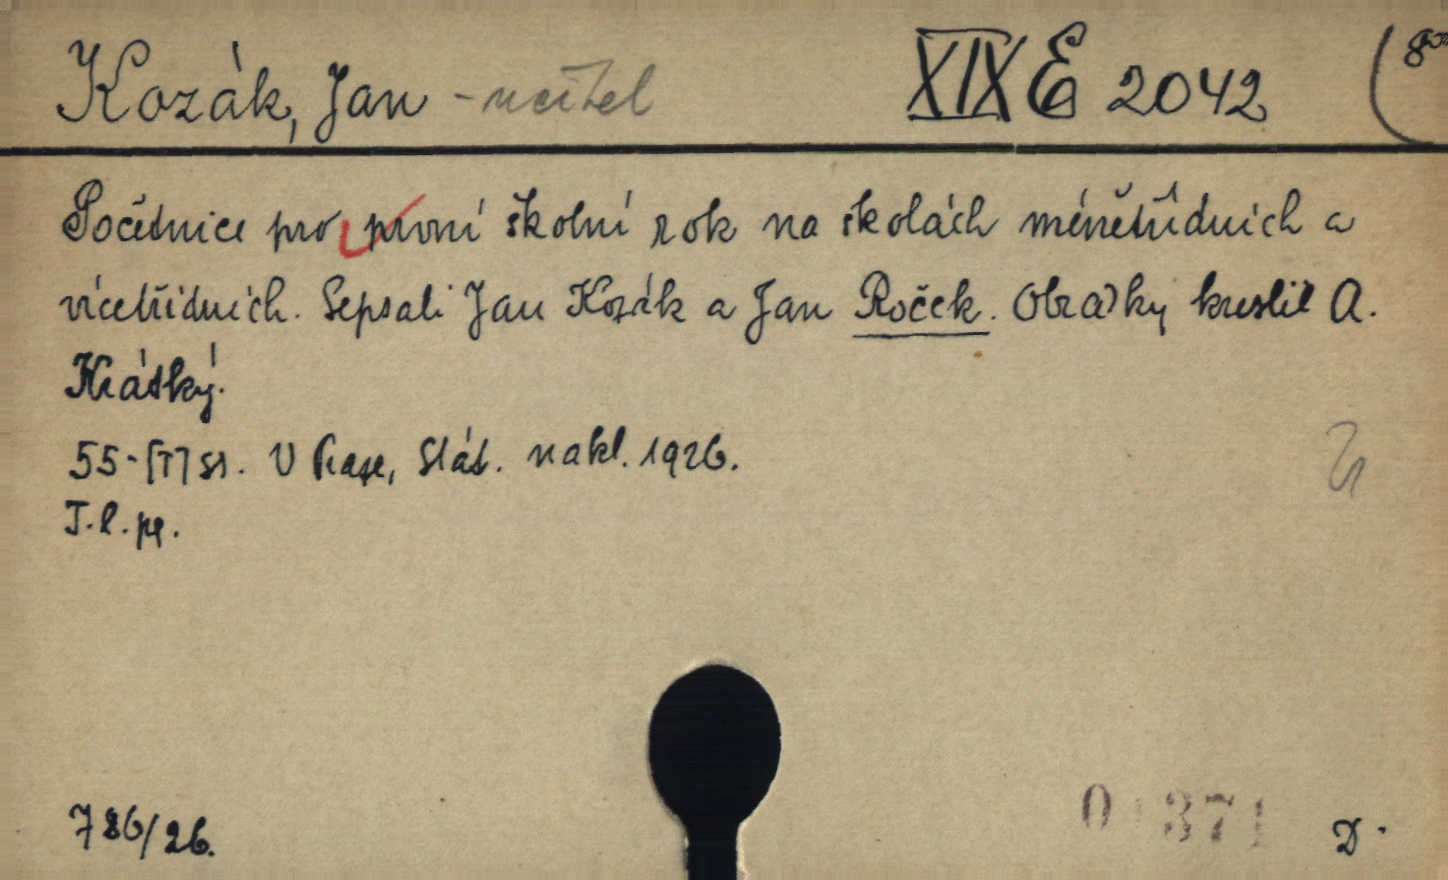 Kozák, Jan - učitel XIX E 2042 (8°
Početnice pro první školní rok na školách ménětřídních a
vícetřídních. Sepsali Jan Kozák a Jan Roček. Obrázky kreslil A.
Krátký.
55-[I] s. V Praze, Stát. nakl. 1926.
T.l.p.
786/26.
D.